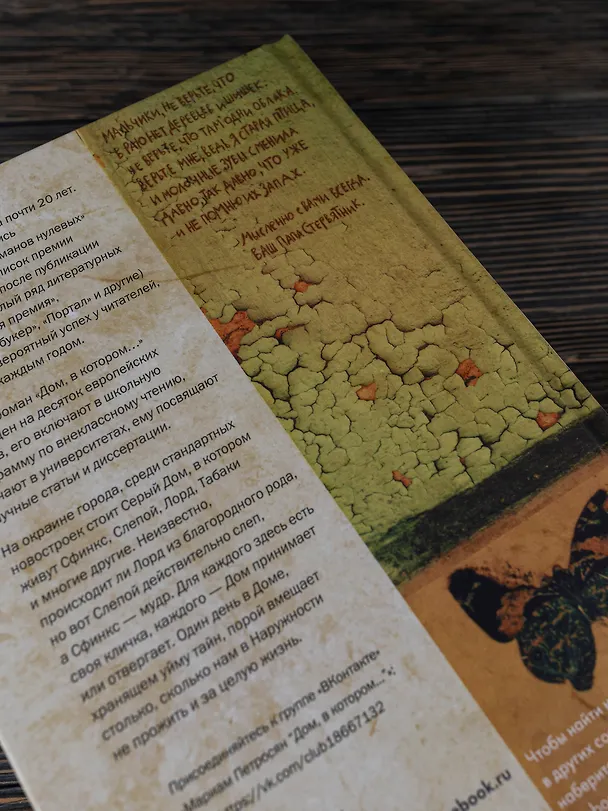 МАЛЬЧИКИ, НЕ ВЕРЬТЕ, ЧТО
В РАЮ НЕТ ДЕРЕВЬЕВ И ШИШЕК.
НЕ ВЕРЬТЕ, ЧТО ТАМ ОДНИ ОБЛАКА.
ВЕРЬТЕ МНЕ, ВЕДЬ Я СТАРАЯ ПТИЦА,
И МОЛОЧНЫЕ ЗУБЫ СМЕНИЛА
ДАВНО, ТАК ДАВНО, ЧТО УЖЕ
И НЕ ПОМНЮ ИХ ЗАПАХ.
МЫСЛЕННО С ВАМИ ВСЕГДА.
ВАШ ПАПА СТЕРВЯТНИК.
почти 20 лет.
оманов нулевых»
писок премии
после публикации
лый ряд литературных
я премия»,
букер», «Портал» и другие)
вероятный успех у читателей,
каждым годом.
роман «Дом, в котором...»
ен на десяток европейских
в, его включают в школьную
рамму по внеклассному чтению,
чают в университетах, ему посвящают
учные статьи и диссертации.
На окраине города, среди стандартных
новостроек стоит Серый Дом, в котором
живут Сфинкс, Слепой, Лорд, Табаки
и многие другие. Неизвестно,
происходит ли Лорд из благородного рода,
но вот Слепой действительно слеп,
а Сфинкс — мудр. Для каждого здесь есть
своя кличка, каждого — Дом принимает
или отвергает. Один день в Доме,
хранящем уйму тайн, порой вмещает
столько, сколько нам в Наружности
не прожить и за целую жизнь.
Присоединяйтесь к группе «ВКонтакте»
Мариам Петросян "Дом, в котором...":
https://vk.com/club18667132
ebook.ru
Чтобы найти н
в других со
наберит